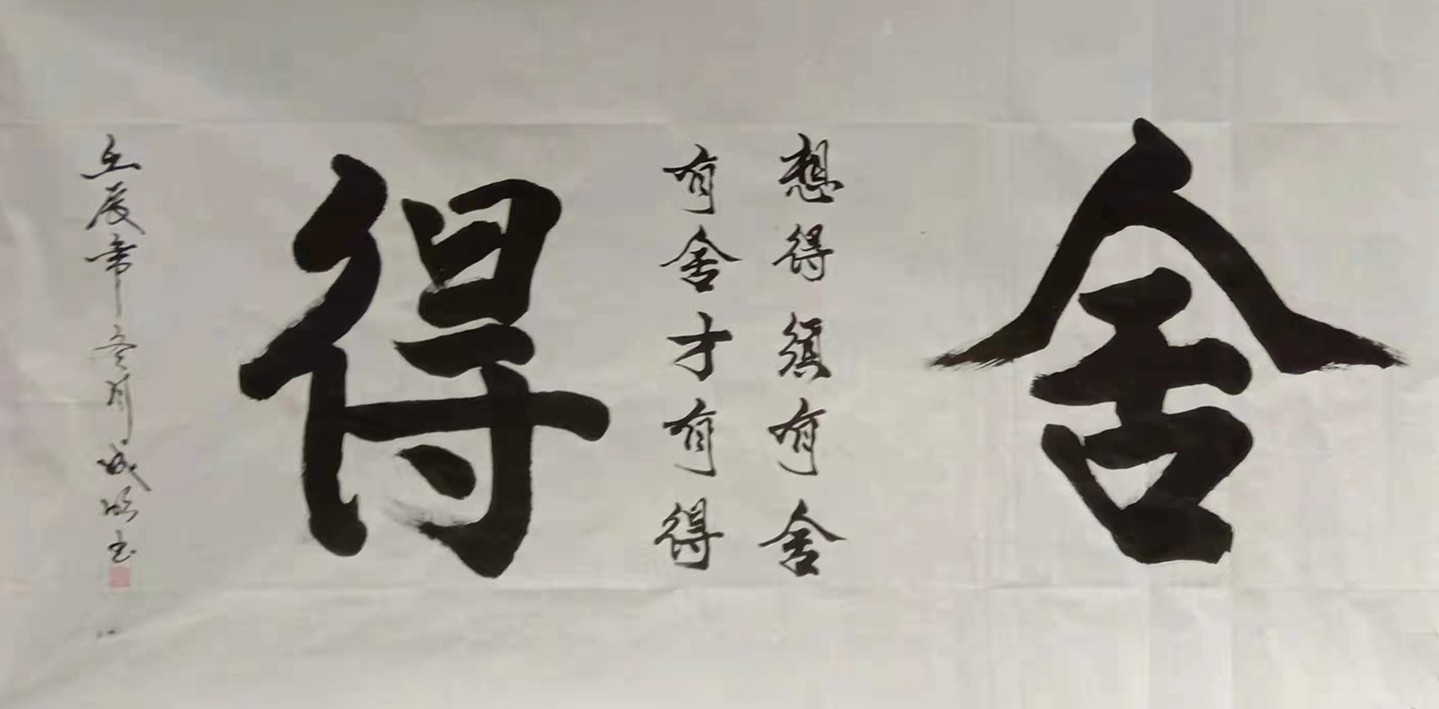 舍
想得须有舍
有舍才有得
得
壬辰年冬月成